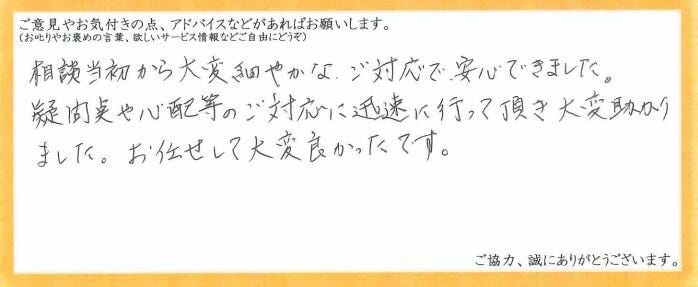 ご意見やお気付きの点、アドバイスなどがあればお願いします。
(お叱りやお褒めの言葉、欲しいサービス情報などご自由にどうぞ)
相談当初から大変細やかな、ご対応で安心できました。
疑問点や心配等のご対応に迅速に行って頂き大変助かり
ました。お任せして大変良かったです。
ご協力、誠にありがとうございます。